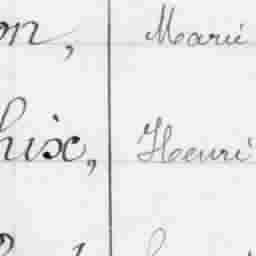 on, Marie
hix, Henri